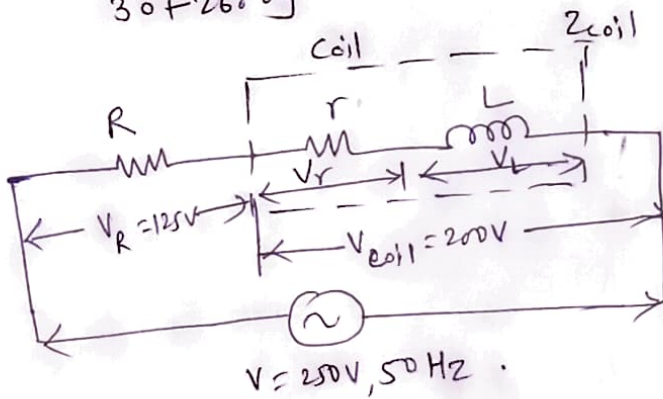 Coil Zcoil
R r L
Vr VL
VR = 125V
Vcoil = 200V
V = 250V, 50 Hz .